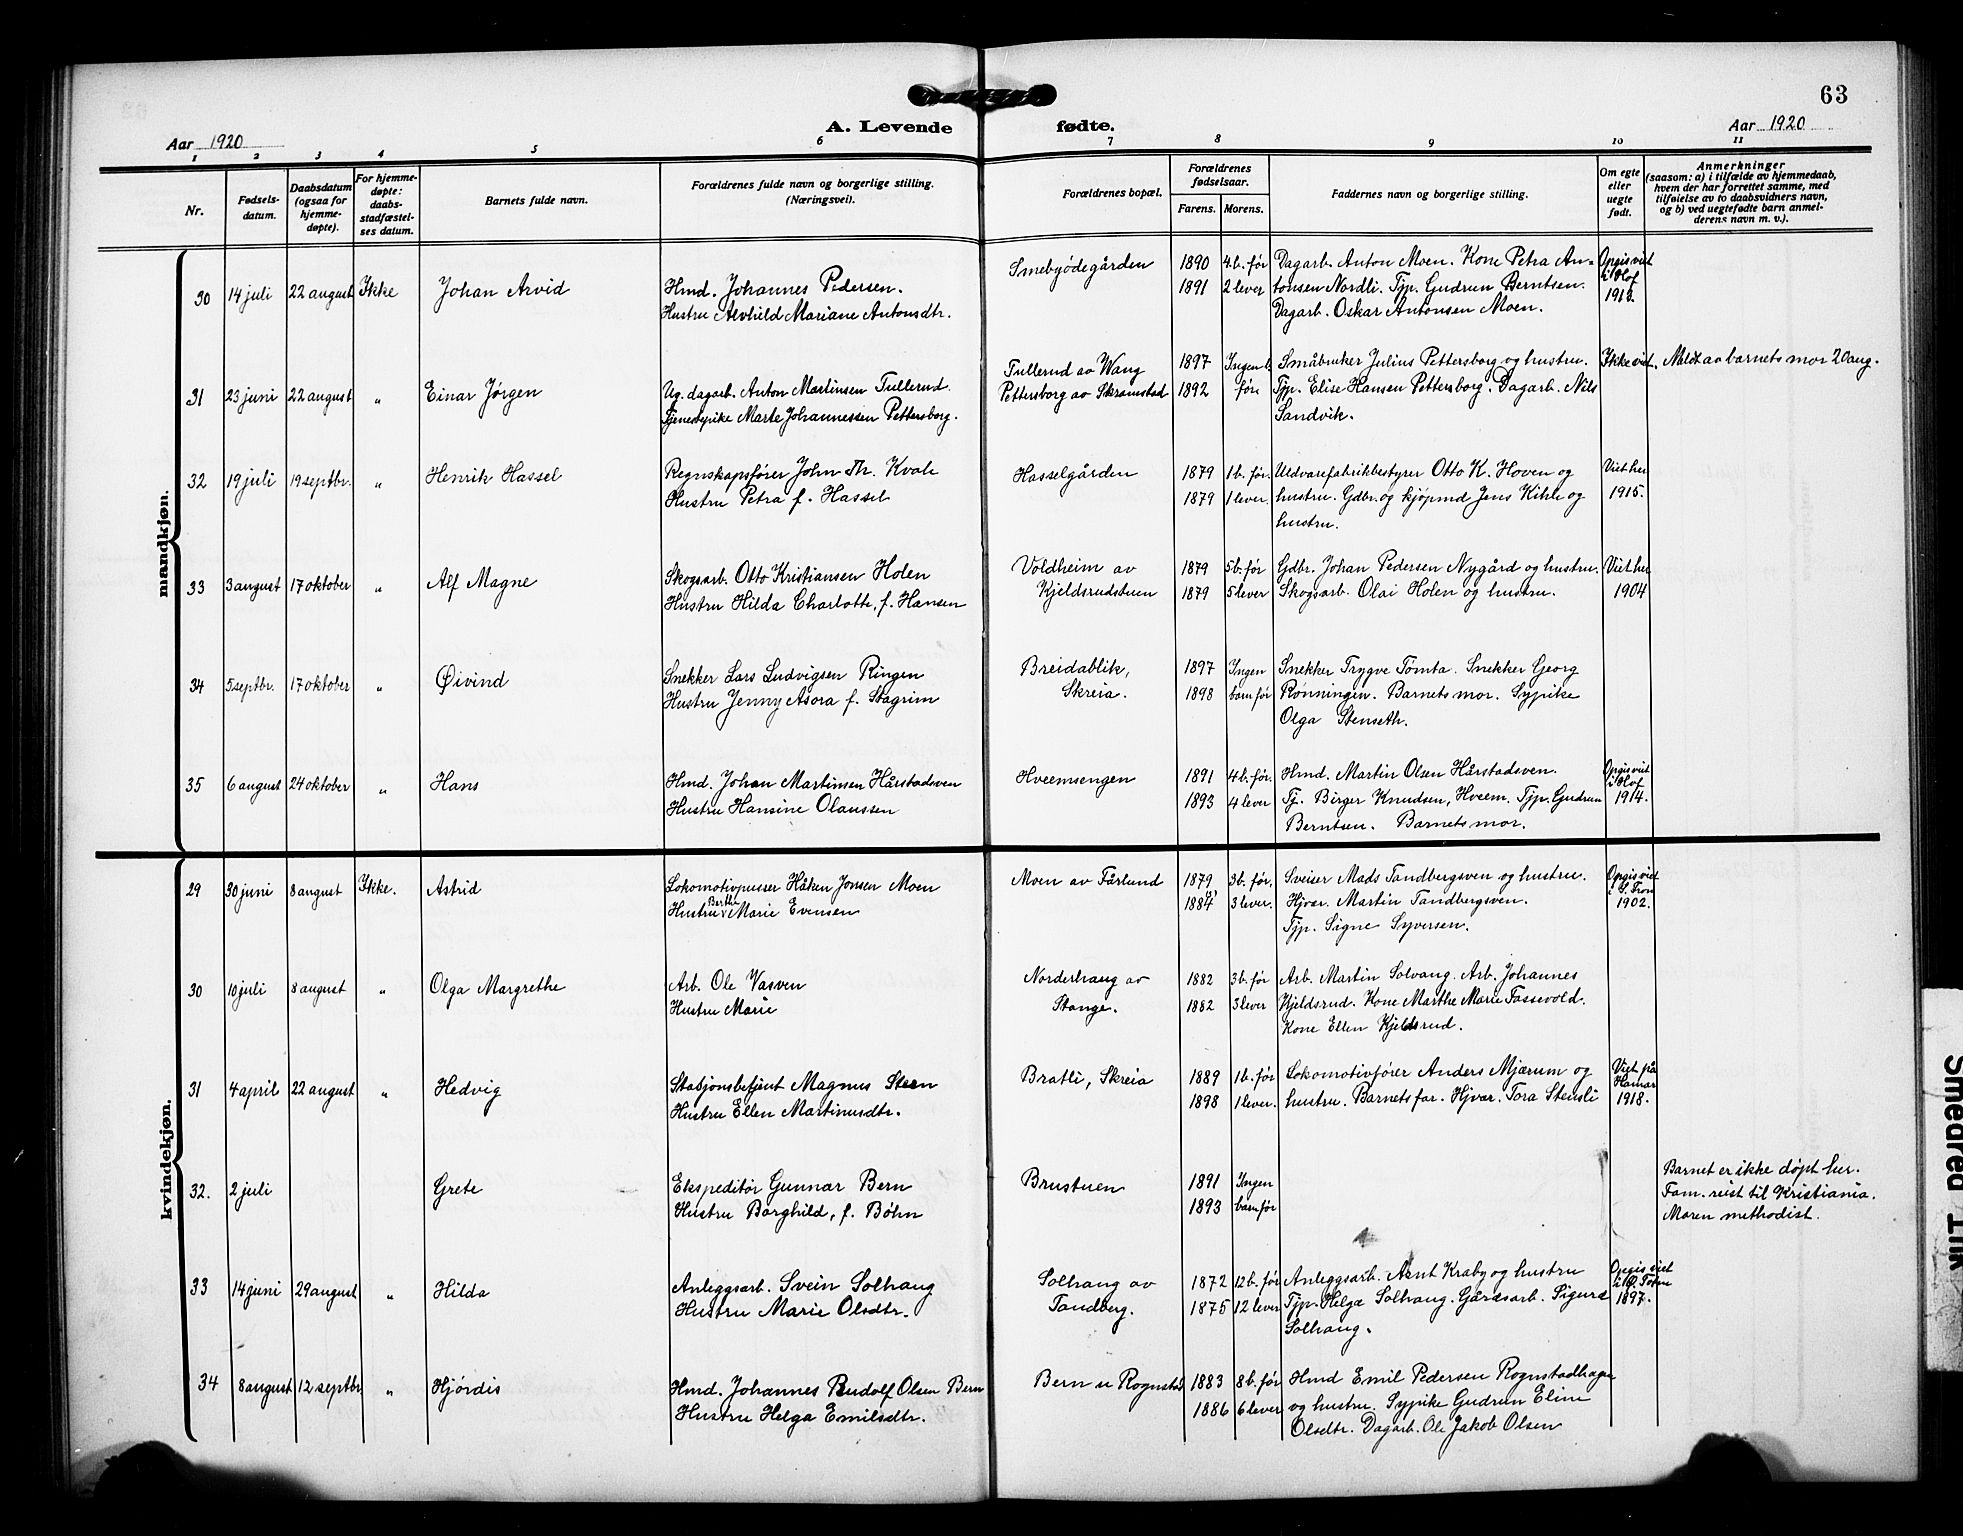 63
Aar 1920
A. Levende fødte.
Aar 1920
1 2 3 4 5 6 7 8 9 10 11
Nr.
Fødsels-
datum.
Daabsdatum
(ogsaa for
hjemme-
døpte).
For hjemme-
døpte:
daabs-
stadfæstel-
ses datum.
Barnets fulde navn.
Forældrenes fulde navn og borgerlige stilling.
(Næringsvei).
Forældrenes bopæl.
Forældrenes
fødselsaar.
Farens. Morens.
Faddernes navn og borgerlige stilling.
Om egte
eller
uegte
født.
Anmerkninger
(saasom: a) i tilfælde av hjemmedaab,
hvem der har forrettet samme, med
tilføielse av to daabsvidners navn,
og b) ved uegtefødte barn anmel-
derens navn m. v.).
mandkjøn.
30 14 juli 22 august Ikke Johan Arvid
Hmd. Johannes Pedersen.
Hustru Alvhild Mariane Antonsdtr.
Smebyødegården
1890 4 b. før
1891 2 lever
Dagarb. Anton Moen. Kone Petra An-
tonsen Nordli. Tjp. Gudrun Berntsen.
Dagarb. Oskar Antonsen Moen.
Opgis viet
i Hof
1913.
31 23 juni 22 august " Einar Jørgen
Ug. dagarb. Anton Martinsen Tullerud.
Tjenestepike Marte Johannessen Pettersborg.
Tullerud av Wang
Pettersborg av Skramstad
1897 Ingen b.
1892 før
Småbruker Julius Pettersborg og hustru.
Tjp. Elise Hansen Pettersborg. Dagarb. Nils
Sandvik.
Ikke viet.
Meldt av barnets mor 20 aug.
32 19 juli 19 septbr. " Henrik Hassel
Regnskapsfører John Th. Kvale
Hustru Petra f. Hassel
Hasselgården
1879 1 b. før.
1879 1 lever
Uldvarefabrikbestyrer Otto K. Hoven og
hustru. Gdbr. og kjøpmd Jens Kihle og
hustru.
Viet her
1915.
33 3 august 17 oktober " Alf Magne
Skogsarb. Otto Kristiansen Holen
Hustru Hilda Charlotte, f. Hansen
Voldheim av
Kjeldsrudstuen
1879 5 b. før
1879 5 lever
Gdbr. Johan Pedersen Nygård og hustru.
Skogsarb. Olai Holen og hustru.
Viet her
1904
34 5 septbr. 17 oktober " Øivind
Snekker Lars Ludvigsen Ringen
Hustru Jenny Asora f. Stagrim
Breidablik,
Skreia.
1897 Ingen
1898 barn før
Snekker Trygve Tømta. Snekker Georg
Rønningen. Barnets mor. Sypike
Olga Stenseth.
35 6 august 24 oktober " Hans
Hmd. Johan Martinsen Hårstadsven
Hustru Hansine Olaussen
Hveemsengen
1891 4 b. før.
1893 4 lever
Hmd. Martin Olsen Hårstadsven.
Tj. Birger Knudsen, Hveem. Tjp. Gudrun
Berntsen. Barnets mor.
Opgis viet
i Hof
1914.
kvindekjøn.
29 30 juni 8 august Ikke. Astrid
Lokomotivpusser Håken Jonsen Moen
Berthe
Hustru Marie Evensen
Moen av Fårlund
1879 3 b. før.
1884 3 lever.
Sveiser Mads Tandbergsven og hustru.
Hjvar. Martin Tandbergsven.
Tjp. Signe Syversen.
Opgis viet
i S. Fron
1902.
30 10 juli 8 august " Olga Margrethe
Arb. Ole Vasven
Hustru Marie
Norderhaug av
Stange.
1882 3 b. før
1882 3 lever
Arb. Martin Solvang. Arb. Johannes
Kjeldsrud. Kone Marthe Marie Fossevold.
Kone Ellen Kjeldsrud.
31 4 april 22 august " Hedvig
Stasjonsbetjent Magnus Steen
Hustru Ellen Martinusdtr.
Bratli, Skreia
1889 1 b. før
1898 1 lever.
Lokomotivfører Anders Mjærum og
hustru. Barnets far. Hjvar. Tora Stensli
Viet på
Hamar
1918.
32. 2 juli Grete
Ekspeditør Gunnar Bern
Hustru Borghild, f. Bøhn
Brustuen
1891 Ingen
1893 barn før
Barnet er ikke døpt her.
Fam. reist til Kristiania.
Moren methodist.
33 14 juni 29 august " Hilda
Anleggsarb. Svein Solhaug
Hustru Marie Olsdtr.
Solhaug av
Tandberg.
1872 12 b. før
1875 12 lever
Anleggsarb. Arnt Kraby og hustru
Tjp. Helga Solhaug. Gårdsarb. Sigurd
Solhaug.
Opgis viet
1897.
34 8 august 12 septbr " Hjørdis
Hmd. Johannes Rudolf Olsen Bern
Hustru Helga Emilsdtr.
Bern u Rognstad
1883 8 b. før
1886 6 lever
Hmd Emil Pedersen Rognstadhagen
og hustru. Sypike Gudrun Eline
Olsdtr. Dagarb. Ole Jakob Olsen